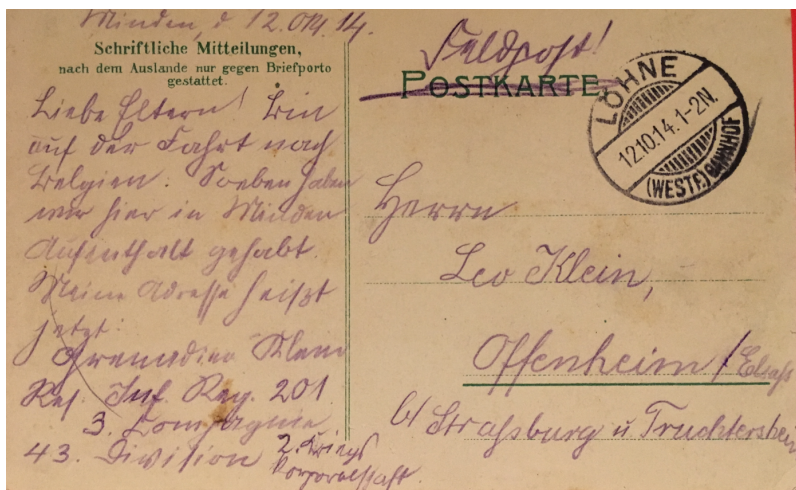 Minden, d 12. Okt. 14.
Schriftliche Mitteilungen,
nach dem Auslande nur gegen Briefporto
gestattet.
Liebe Eltern! Bin
auf der Fahrt nach
Belgien. Soeben haben
wir hier in Minden
Aufenthalt gehabt.
Meine Adresse heißt
jetzt:
Grenadier Klein
Res. Inf. Reg. 201
3. Kompagnie
43. Division 2. Kriegs
Korporalschaft.
Feldpost!
POSTKARTE
LÖHNE
12.10.14. 1-2N.
(WESTF.) BAHNHOF
Herrn
Leo Klein,
Offenheim / Elsaß
b/ Straßburg u Truchtersheim